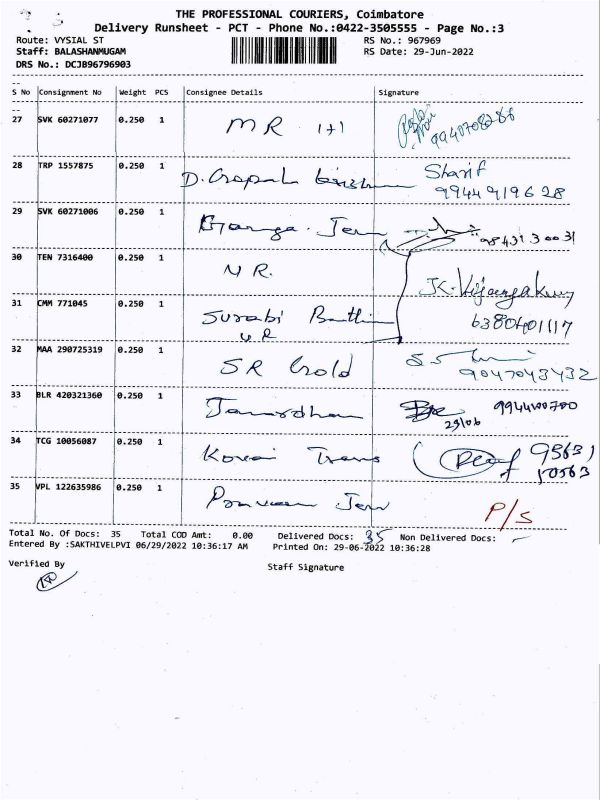 THE PROFESSIONAL COURIERS, Coimbatore
Delivery Runsheet - PCT - Phone No.:0422-3505555 - Page No.:3
Route: VYSIAL ST RS No.: 967969
Staff: BALASHANMUGAM RS Date: 29-Jun-2022
DRS No.: DCJB96796903
S No Consignment No Weight PCS Consignee Details Signature
27 SVK 60271077 0.250 1 MR 1+1 9940708286
28 TRP 1557875 0.250 1 D. Gopala Krishnan Sharif
9944919628
29 SVK 60271006 0.250 1 Ganga Jew 9843130031
30 TEN 7316400 0.250 1 M R.
JK. Vijayakumar
31 CMM 771045 0.250 1 Surabi 6380401117
32 MAA 290725319 0.250 1 SR Gold
9047043432
33 BLR 420321360 0.250 1 Janardhan 9944100700
29/06
34 TCG 10056087 0.250 1 Kovai Trans 95631
10563
35 VPL 122635986 0.250 1 Praveen Jew P/S
Total No. Of Docs: 35 Total COD Amt: 0.00 Delivered Docs: 35 Non Delivered Docs: -
Entered By :SAKTHIVELPVI 06/29/2022 10:36:17 AM Printed On: 29-06-2022 10:36:28
Verified By Staff Signature